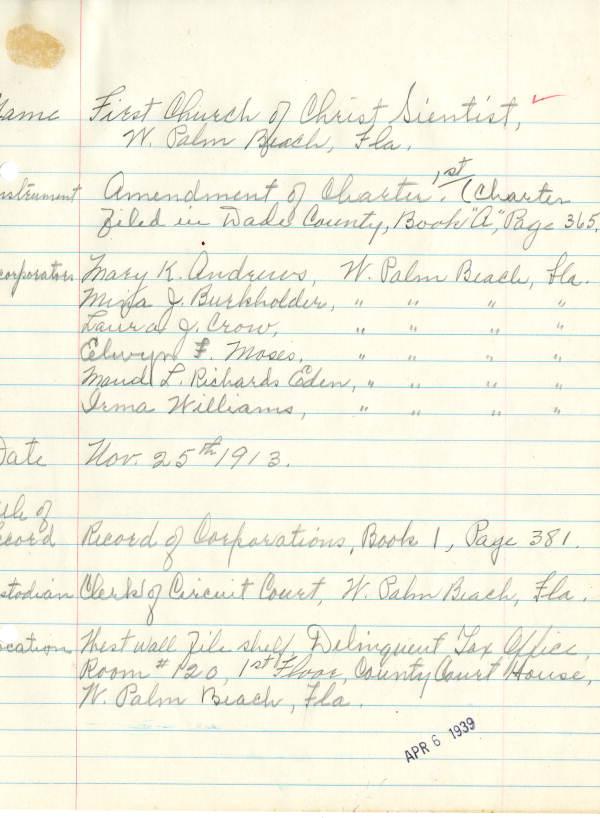 Name First Church of Christ Sientist,
W. Palm Beach, Fla.
Instrument Amendment of Charter, 1st (Charter
filed in Dade County, Book "A", Page 365.
corporators Mary K. Andrews, W. Palm Beach, Fla.
J. Burkholder, " " " "
Laura J. Crow, " " " "
Elwyn F. Moses, " " " "
Maud L. Richards Eden, " " " "
Irma Williams, " " " "
Date Nov. 25th 1913.
of
ecord Record of Corporations, Book 1, Page 381.
stodian Clerk of Circuit Court, W. Palm Beach, Fla.
ocation West wall file shelf, Delinquent Tax Office,
Room # 120, 1st Floor, County Court House,
W. Palm Beach, Fla.
APR 6 1939